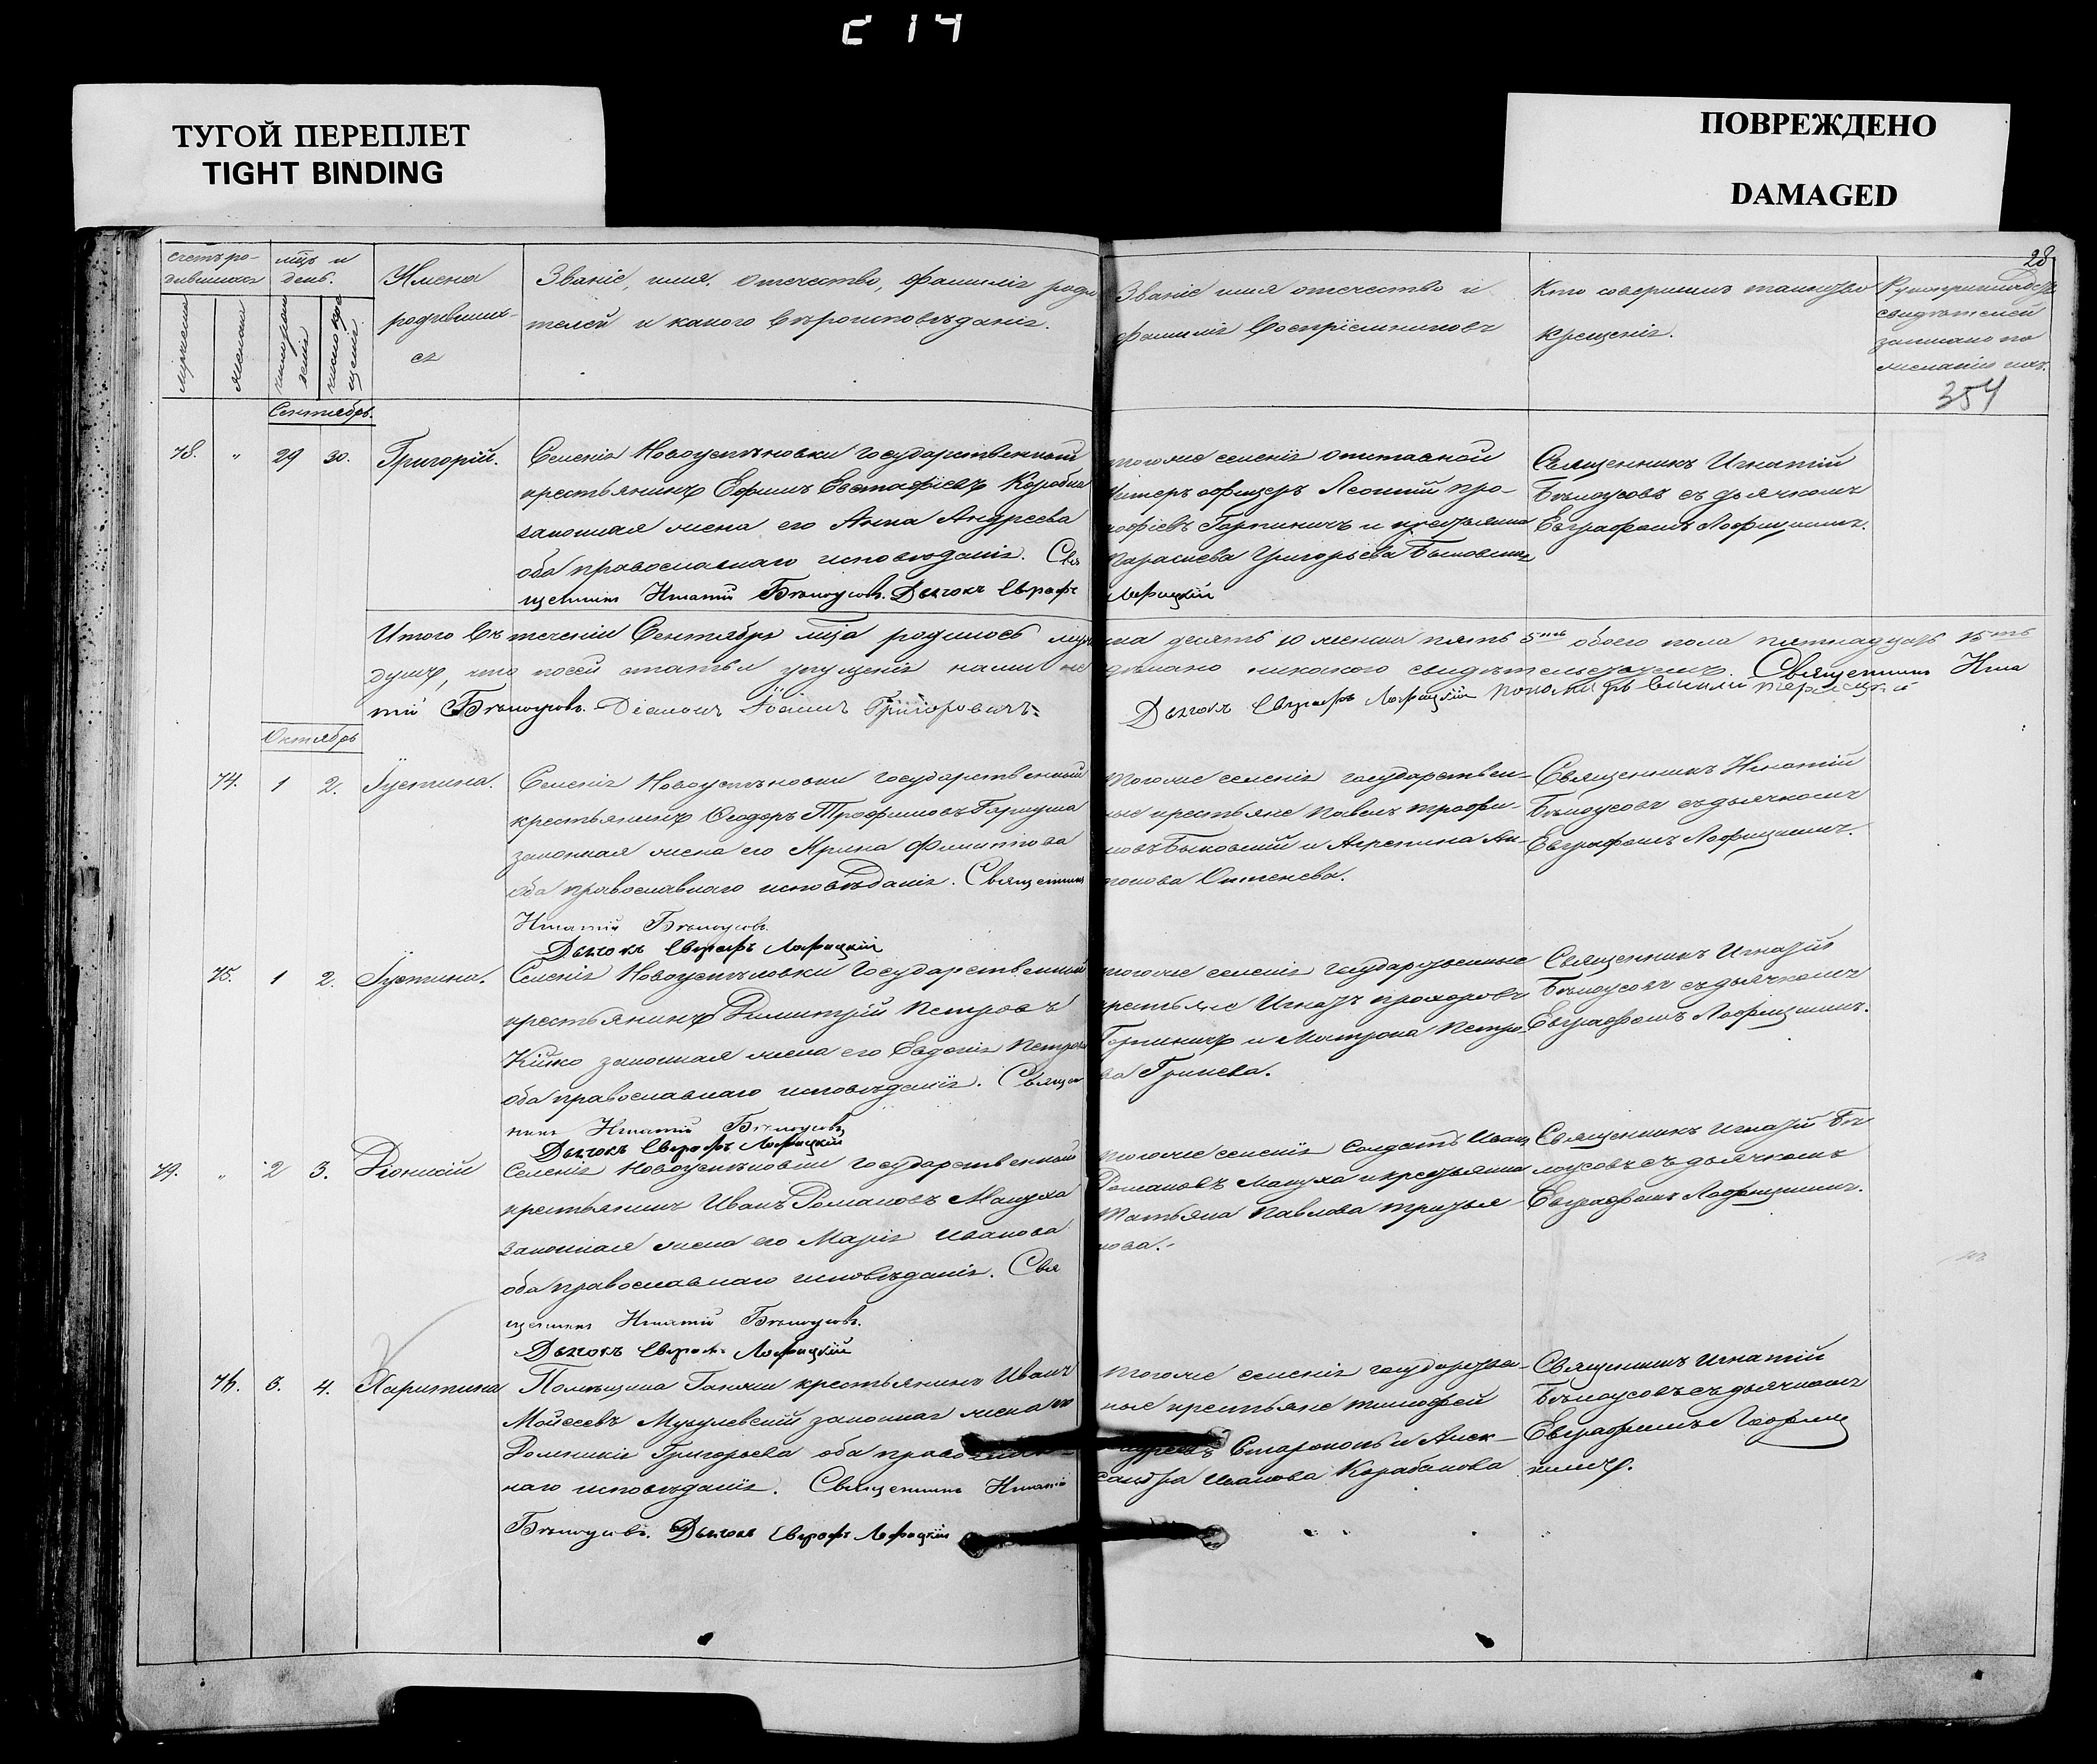 214
ТУГОЙ ПЕРЕПЛЕТ
TIGHT BINDING
ПОВРЕЖДЕНО
DAMAGED
28
Счетъ ро-
дившихся
мцъ и
день.
Имена
родивших-
ся
Званіе, имя, отечество, фамилія роди
телей и какого вѣроисповѣданія.
Званіе имя отечество и
фамилія воспріемниковъ
Кто совершилъ таинство
крещенія.
свидѣтелей
записано по
желанію ихъ.
354
Сентябрь.
78. " 29 30. Григорій.
Селенія Новоустѣновки государственный
крестьянинъ Ефимъ Евстафіевъ
законная жена его Анна Андреева
оба православнаго исповѣданія. Свя
щенникъ Игнатій Бѣлоусовъ. Дьячокъ Евграфъ
тогоже селенія отставной
унтеръ офицеръ Леонтій Про-
кофіевъ и крестьянка
Григорьева
Священникъ Игнатій
Бѣлоусовъ съ дьячкомъ
Евграфомъ
Итого въ теченіи Сентября мца родилось муж
ска десять 10 женска пять 5ть обоего пола пятнадцать 15ть
душъ, что посей статьи упущенія нами не
никакого Священникъ Игна
тій Бѣлоусовъ. Діаконъ Іоаннъ Григоровичъ
Дьячокъ Евграфъ Пономарь
Октябрь
74. 1 2. Іустина.
Селенія Новоустѣновки государственный
крестьянинъ Ѳеодоръ Трофимовъ
законная жена его Ирина Филиппова
оба православнаго исповѣданія. Священникъ
Игнатій Бѣлоусовъ.
Дьячокъ Евграфъ
тогоже селенія государствен-
ные крестьяне Павелъ Трофи-
мовъ Быковскій и Агрепина Ан-
тонова
Священникъ Игнатій
Бѣлоусовъ съ дьячкомъ
Евграфомъ
75. 1 2. Іустина.
Селенія Новоустѣновки Государственный
крестьянинъ Димитрій Петровъ
Кійко законная жена его Евдокія Петрова
оба православнаго исповѣданія. Священ
никъ Игнатій Бѣлоусовъ
Дьячокъ Евграфъ
тогоже селенія государственные
крестьяне Игнатъ Прохоровъ
и Матрона Петро-
ва Гринева.
Священникъ Игнатій
Бѣлоусовъ съ дьячкомъ
Евграфомъ
79. " 2 3. Діонисій
Селенія Новоустѣновки государственный
крестьянинъ Иванъ Романовъ Мацуха
законная жена его Марія Иванова
оба православнаго исповѣданія. Свя
щенникъ Игнатій Бѣлоусовъ.
Дьячокъ Евграфъ
тогоже селенія Солдатъ Иванъ
Романовъ Мацуха и крестьянка
Татьяна Павлова
Священникъ Игнатій Бѣ
лоусовъ съ дьячкомъ
Евграфомъ
76. 3. 4. Харитина
Помѣщика крестьянинъ Иванъ
Мойсеевъ законная жена его
Домникія Григорьева оба православ-
наго исповѣданія. Священникъ Игнатій
Бѣлоусовъ. Дьячокъ Евграфъ
тогоже селенія государствен-
ные крестьяне Тимофей
и Алек-
сандра Иванова Карабанова
Священникъ Игнатій
Бѣлоусовъ съ дьячкомъ
Евграфомъ